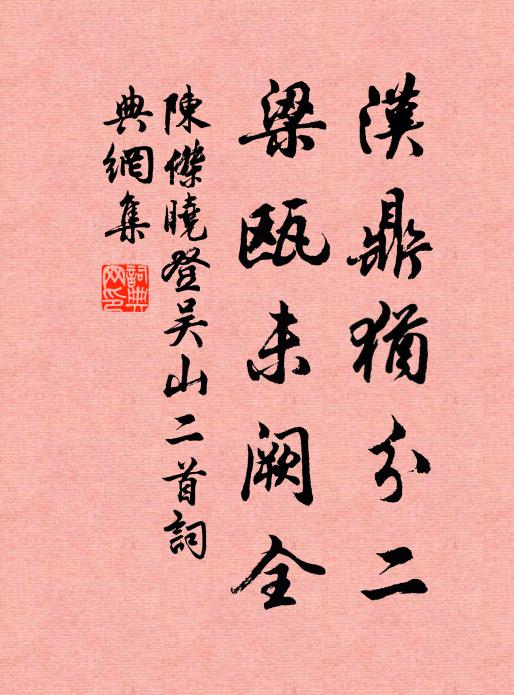 漢鼎猶分二
梁甌未闕全
陳傑曉登吳山二首詞
典網集
詞典網印